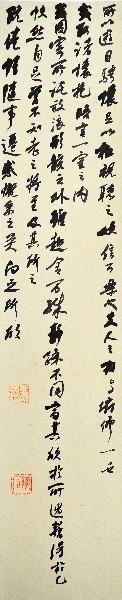 所以遊目騁懷足以極視聽之娛信可樂也夫人之相與俯仰一世
或取諸懷抱晤言一室之內
或因寄所託放浪形骸之外雖趣舍萬殊靜躁不同當其欣於所遇暫得於己
快然自足曾不知老之將至及其所之
既惓情隨事遷感慨係之矣向之所欣